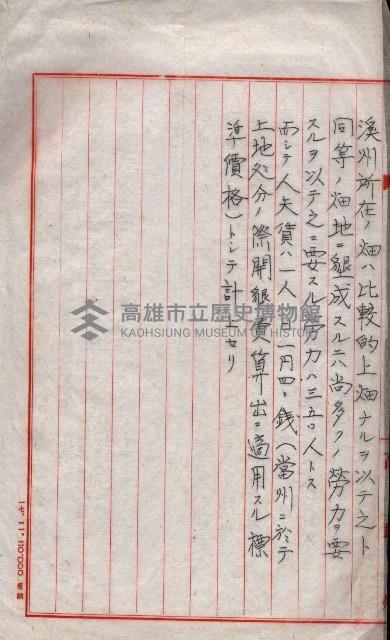 溪州所在ノ畑ハ比較的上畑ナルヲ以テ之ト
同等ノ畑地ニ墾成スルニハ尚多クノ勞力ヲ要
スルヲ以テ之ニ要スル勞力ハ三五〇人トス
而シテ人夫賃ハ一人一日一円四〇錢(當州ニ於テ
土地処分ノ際開墾費算出ニ適用スル標
準價格)トシテ計上セリ
高雄市立歷史博物館
KAOHSIUNG MUSEUM OF HISTORY